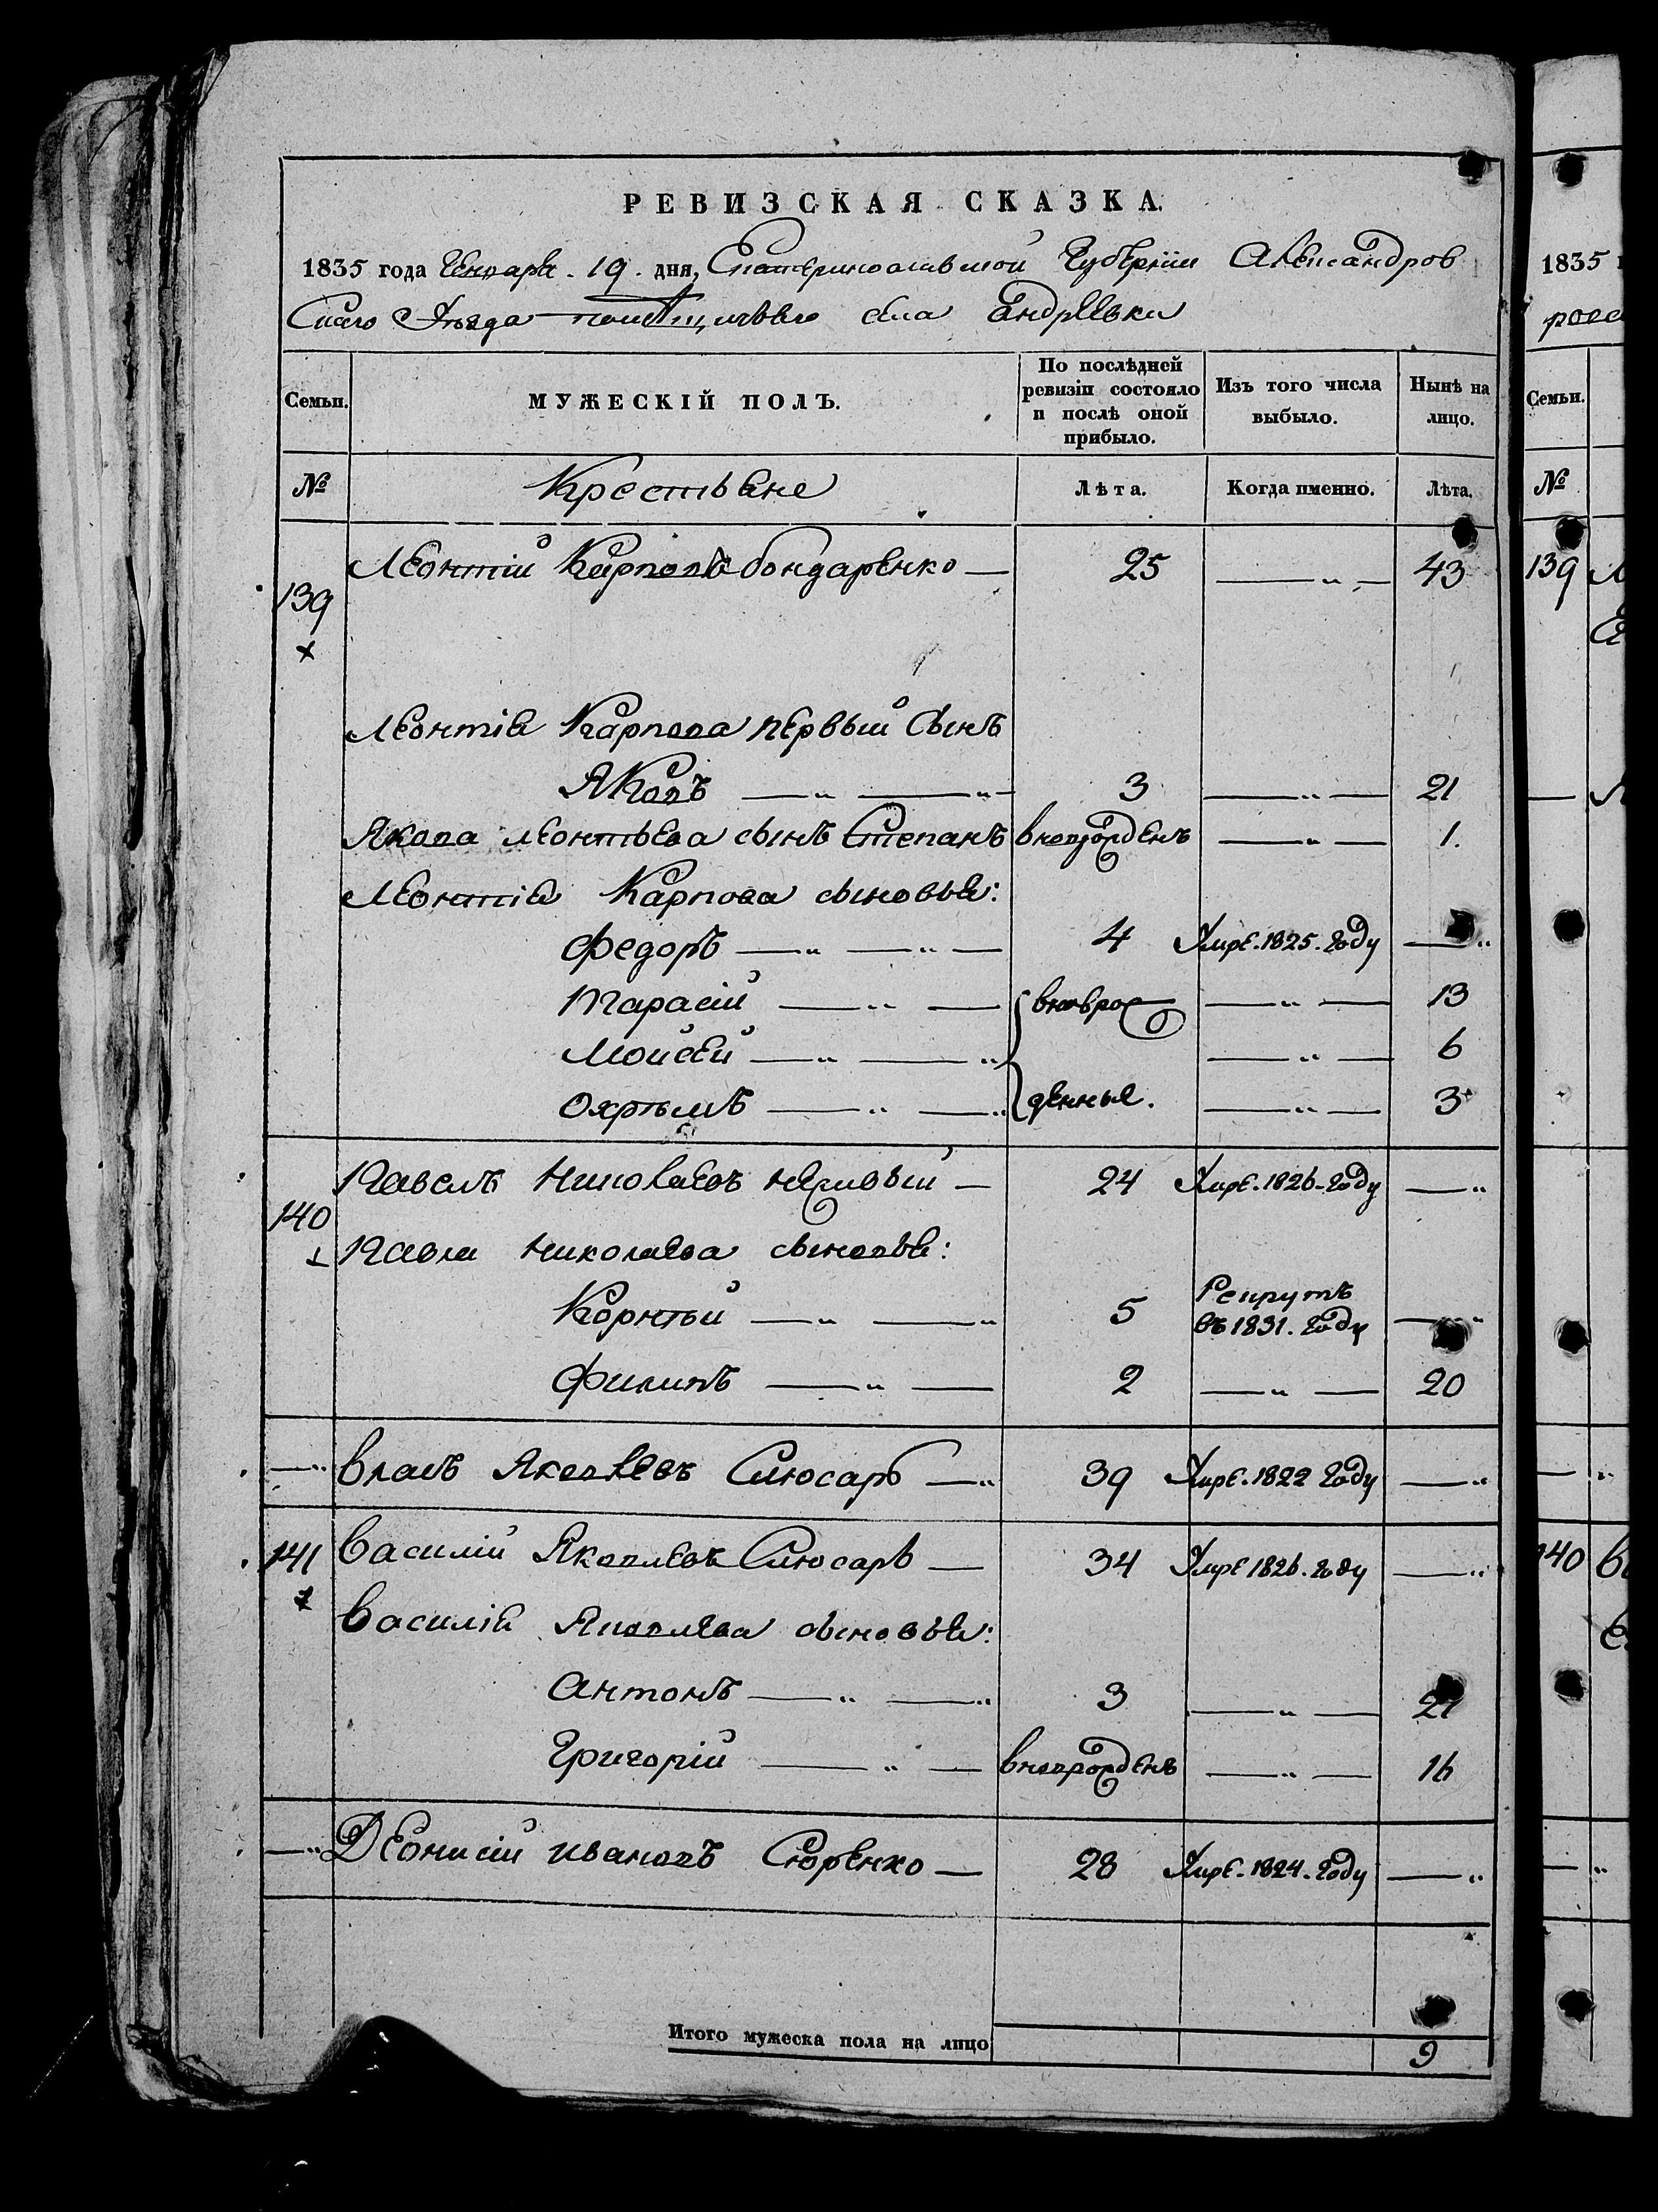 РЕВИЗСКАЯ СКАЗКА.
1835 года Генваря. 19. дня, Екатеринославской Губернии Александров
скаго Уѣзда села Андрѣевки
Семьи. МУЖЕСКІЙ ПОЛЪ. По послѣдней ревизіи состояло и послѣ оной прибыло. Изъ того числа выбыло. Нынѣ на лицо.
№ Крестьяне Лѣта. Когда именно. Лѣта.
139 Леонтій Карповъ бондаренко — 25 — „ — 43
Леонтія Карпова первый Сынъ
Яковъ — „ — „ — 3 — „ — 21
Якова леонтьева сынъ Степанъ вновърожденъ — „ — 1.
Леонтія Карпова сыновья:
Федоръ — „ — „ — 4 Умре. 1825. Году — „
Тарасій — „ — вноврож — „ — 13
Мойсей — „ — „ — „ — 6
Охрѣмъ — „ — „ денные. — „ — 3
140 Павелъ Николаевъ — 24 Умре. 1826. Году — „
Павла Николаева сыновья:
Корнѣй — „ — „ 5 Рекрутъ въ 1831. Году — „
Филипъ — „ — 2 — „ — 20
— „ Власъ Яковлевъ Слюсарь — „ 39 Умре. 1822 Году — „
141 Василій Яковлевъ Слюсарь — 34 Умре 1826. Году — „
Василія Яковлева сыновья:
Антонъ — „ — „ 3 — „ — 21
Григорій — „ — вновърожденъ — „ — 16
— „ Деонисій Ивановъ Сюренко — 28 Умре. 1824. Году — „
Итого мужеска пола на лицо 9
1835
росс
Семьи.
№
139
140